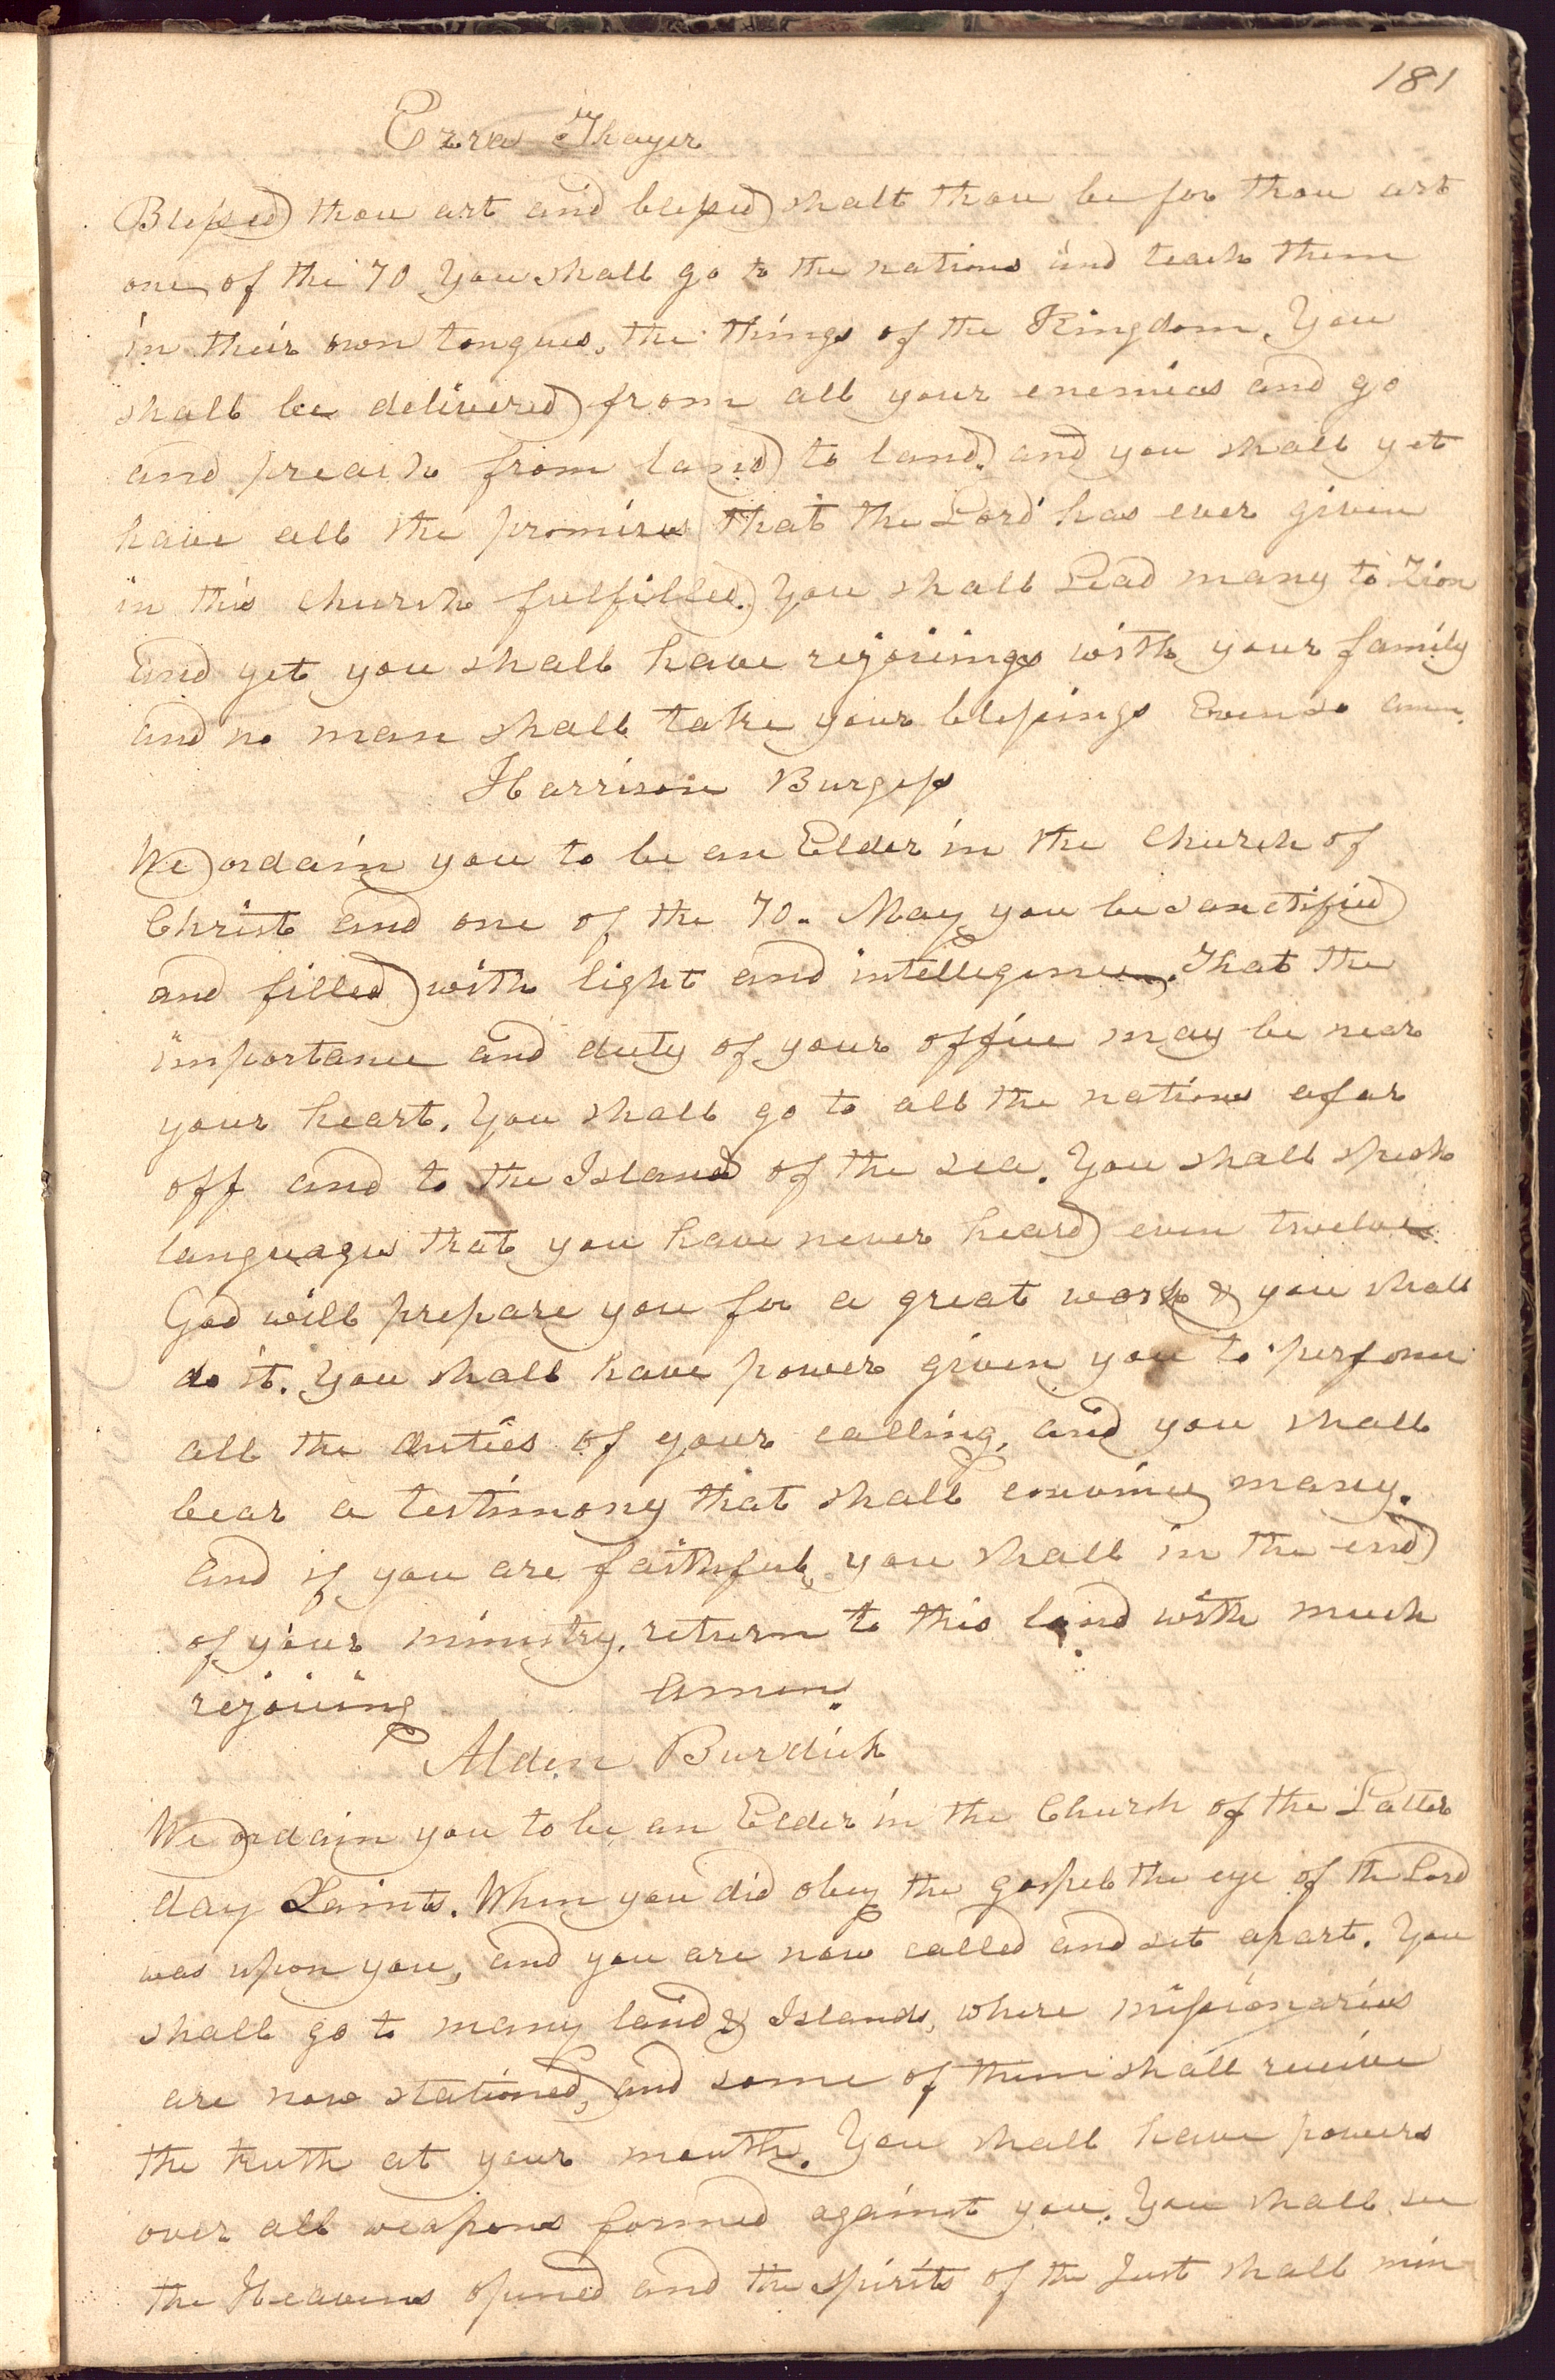 181
Ezra Thayer
Blessed thou art and blessed shalt thou be for thou art
one of the 70 You shall go to the nations and teach them
in their own tongues, the things of the Kingdom. You
shall be delivered from all your enemies and go
and preach from land to land. and you shall yet
have all the promises that the Lord has ever given
in this church fulfilled. You shall Lead many to Zion
And yet you shall have rejoicings with your family
and no man shall take your blessings Even so amen.
Harrison Burgess
We ordain you to be an Elder in the Church of
Christ and one of the 70. May you be sanctified
and filled with light and intellegence. That the
importance and duty of your office may be near
your heart. You shall go to all the nations afar
off and to the Islands of the sea. You shall speak
languages that you have never heard even twelve
God will prepare you for a great work & you shall
do it. You shall have power given you to perform
all the duties of your calling, and you shall
bear a testimony that shall convince many.
And if you are faithful, you shall in the end
of your ministry, return to this land with much
rejoicing Amen.
Alden Burdick
We ordain you to be an Elder in the Church of the Latter
day Saints. When you did obey the gospel the eye of the Lord
was upon you, and you are now called and set apart. You
shall go to many land & Islands, where missionaries
are now stationed, and some of them shall receive
the truth at your mouth. You shall have powers
over all weapons formed against you. You shall see
the Heavens opened and the spirits of the Just shall min